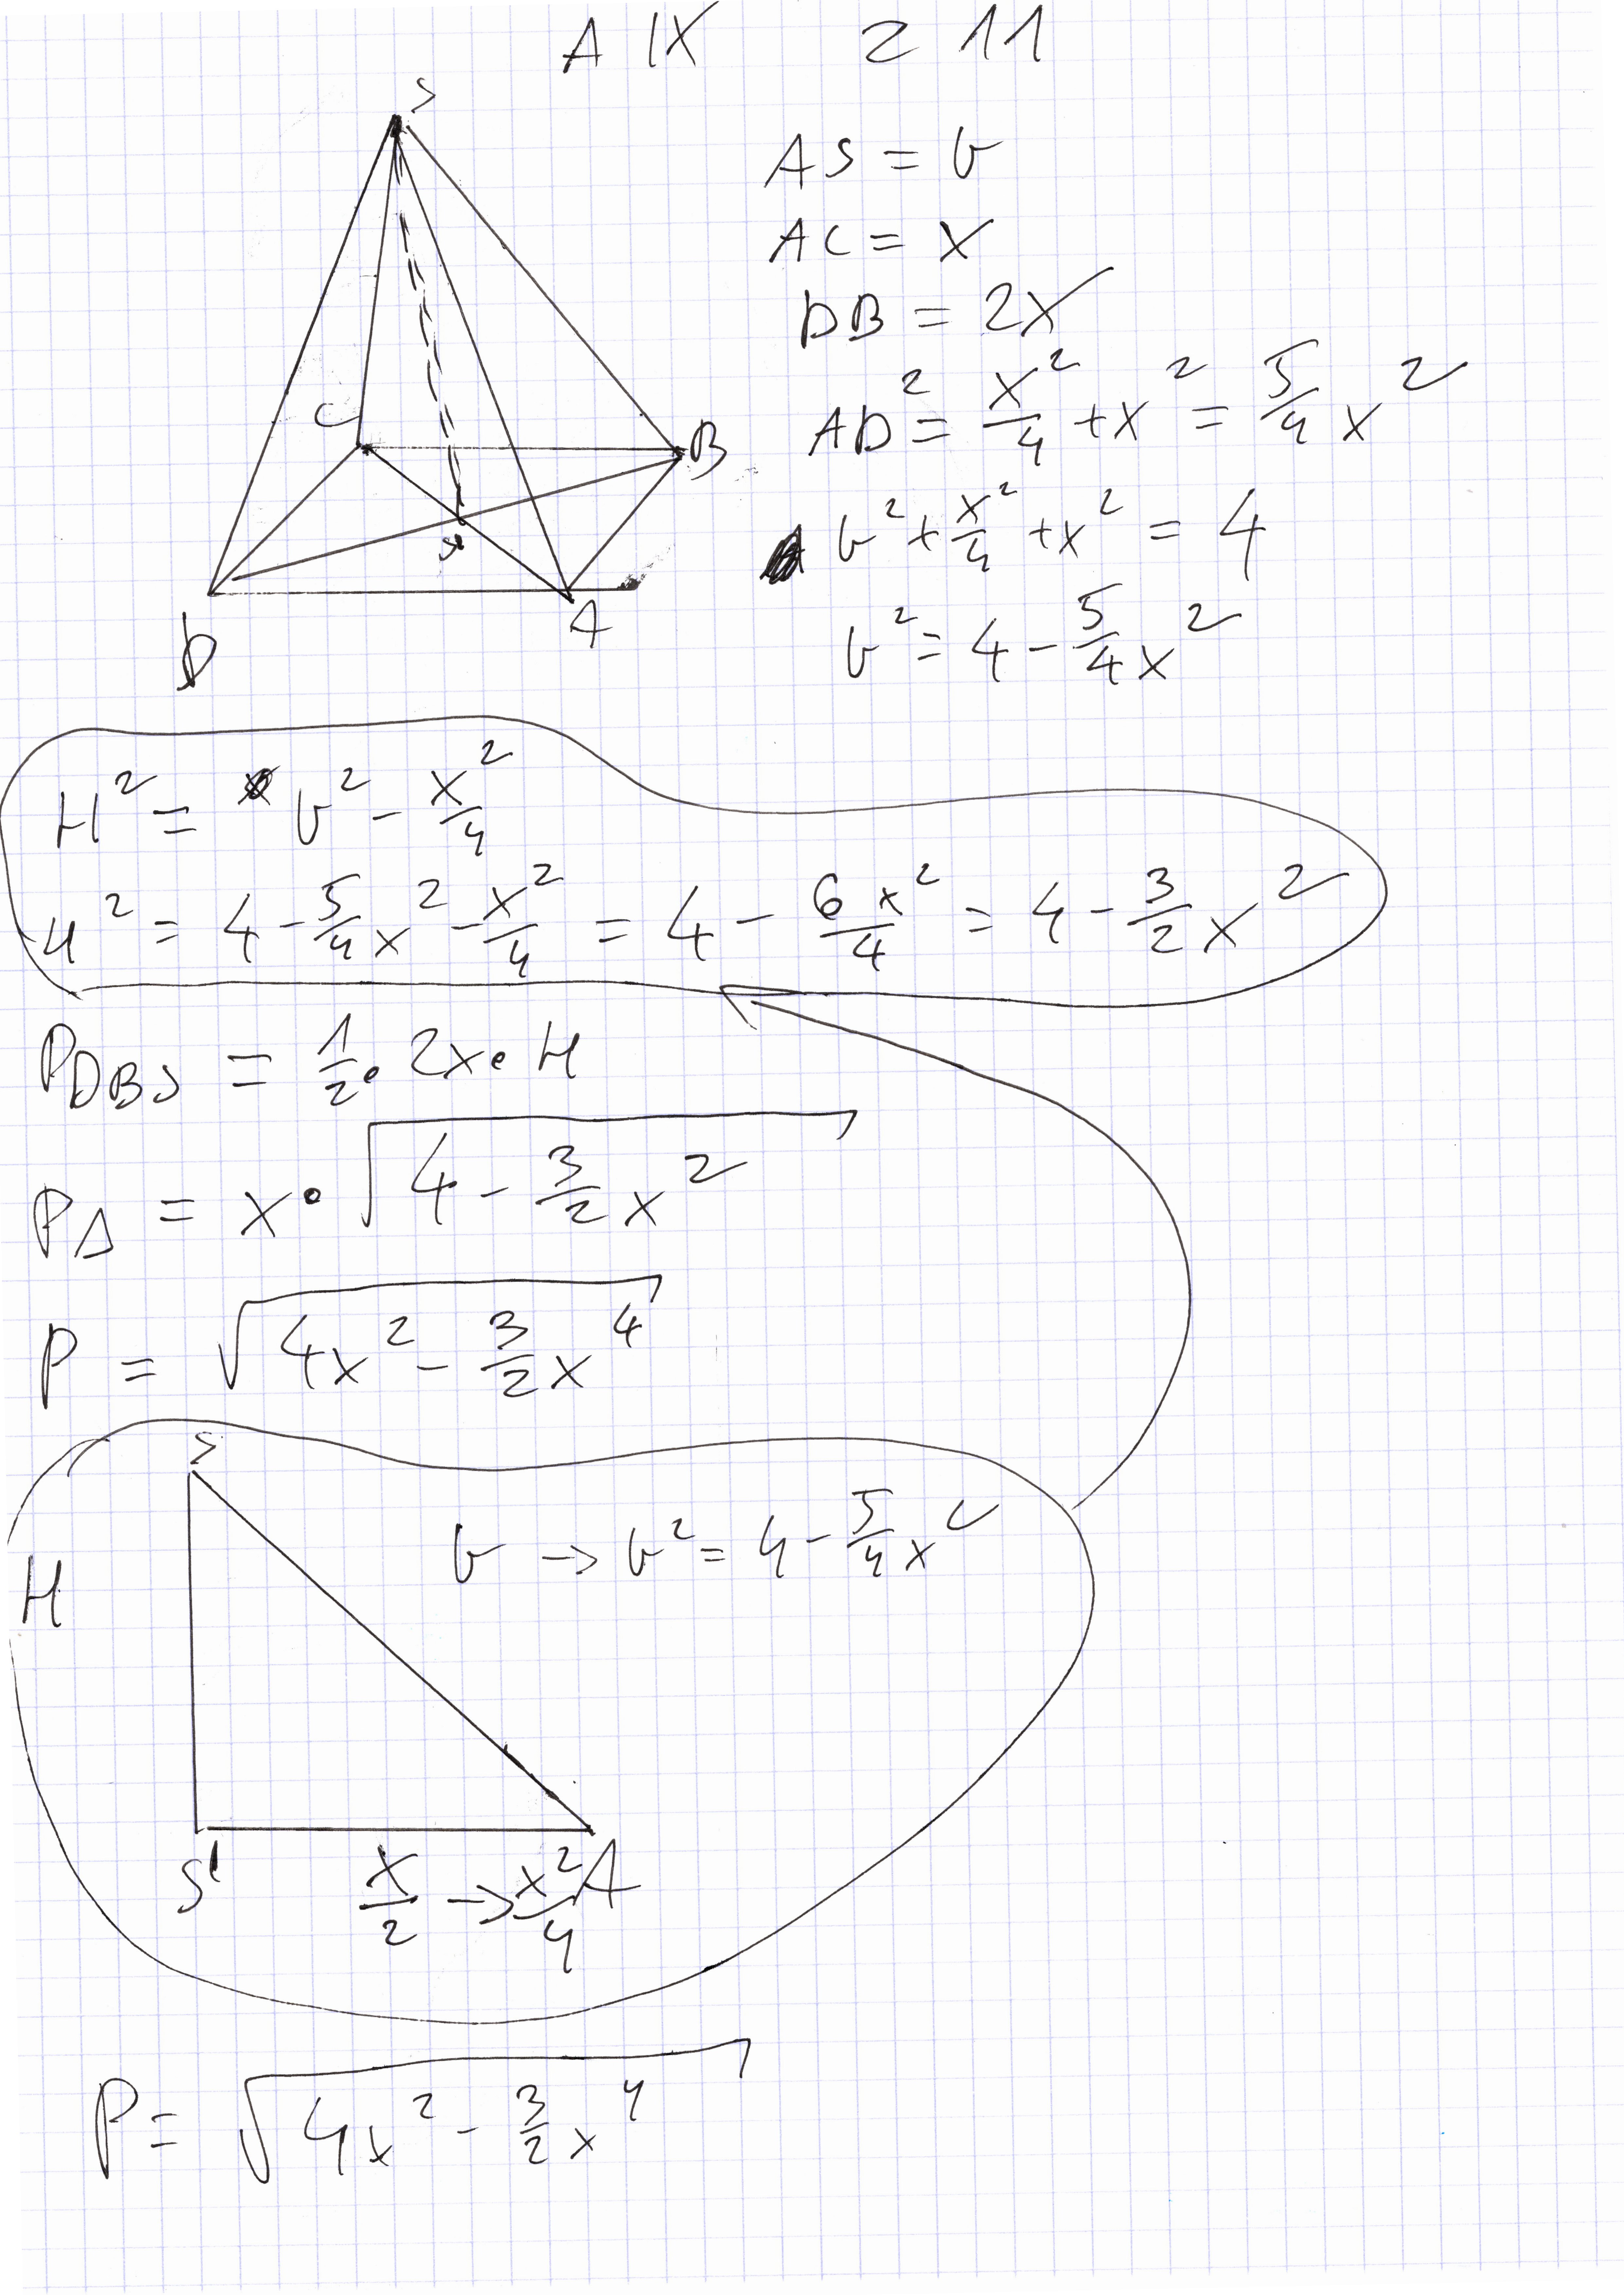 A IX Z 11
S
AS = b
AC = x
DB = 2x
C
B
AD² = x²/4 + x² = 5/4 x²
S'
b² + x²/4 + x² = 4
A
D
b² = 4 - 5/4 x²
H² = b² - x²/4
H² = 4 - 5/4 x² - x²/4 = 4 - 6x²/4 = 4 - 3/2 x²
P_DBS = 1/2 • 2x • H
P_Δ = x • √(4 - 3/2 x²)
P = √(4x² - 3/2 x⁴)
S
b → b² = 4 - 5/4 x²
H
S' x/2 → x²/4 A
P = √(4x² - 3/2 x⁴)